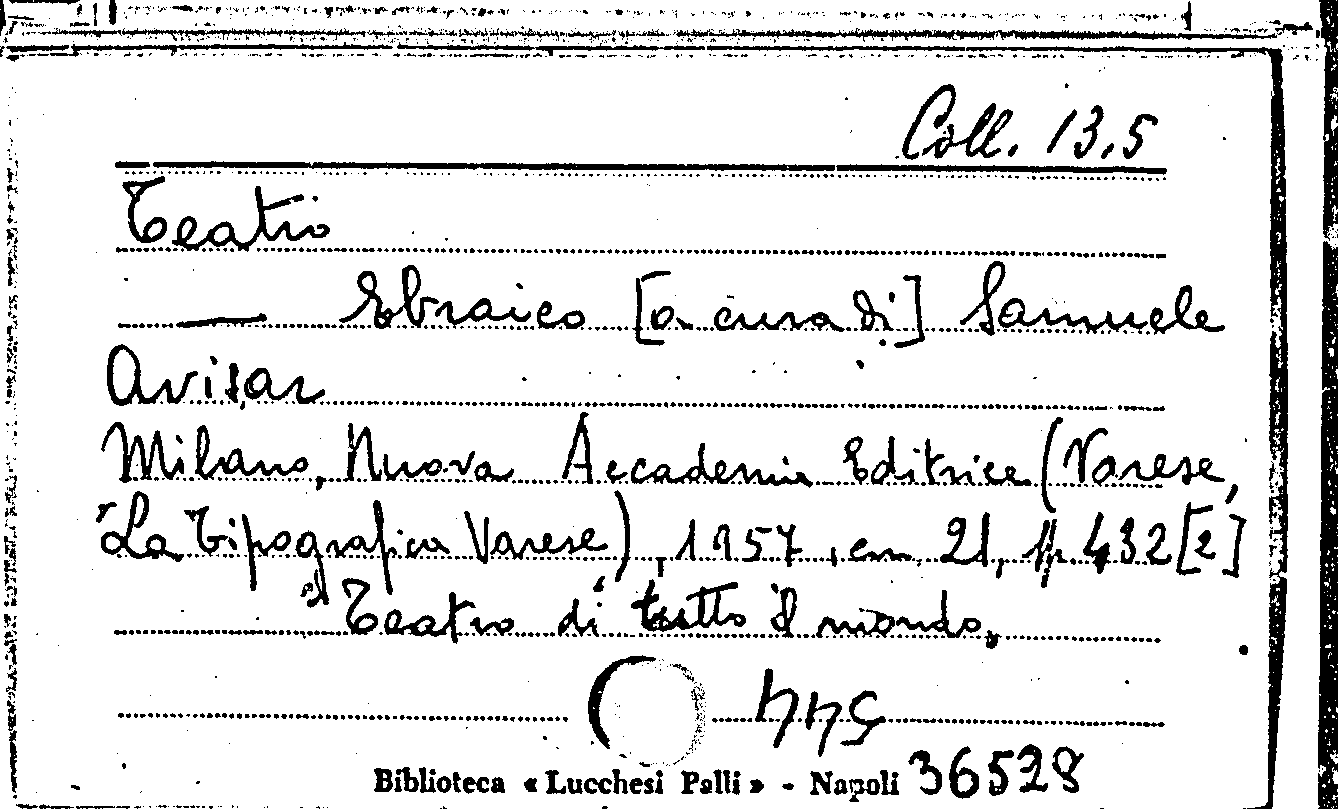 Coll. 13.5
Teatro
— Ebraico [a cura di] Samuele
Avisar
Milano, Nuova Accademia Editrice (Varese,
La Tipografica Varese), 1957, cm. 21, pp. 432 [2]
Teatro di tutto il mondo.
Biblioteca « Lucchesi Palli » - Napoli 36528